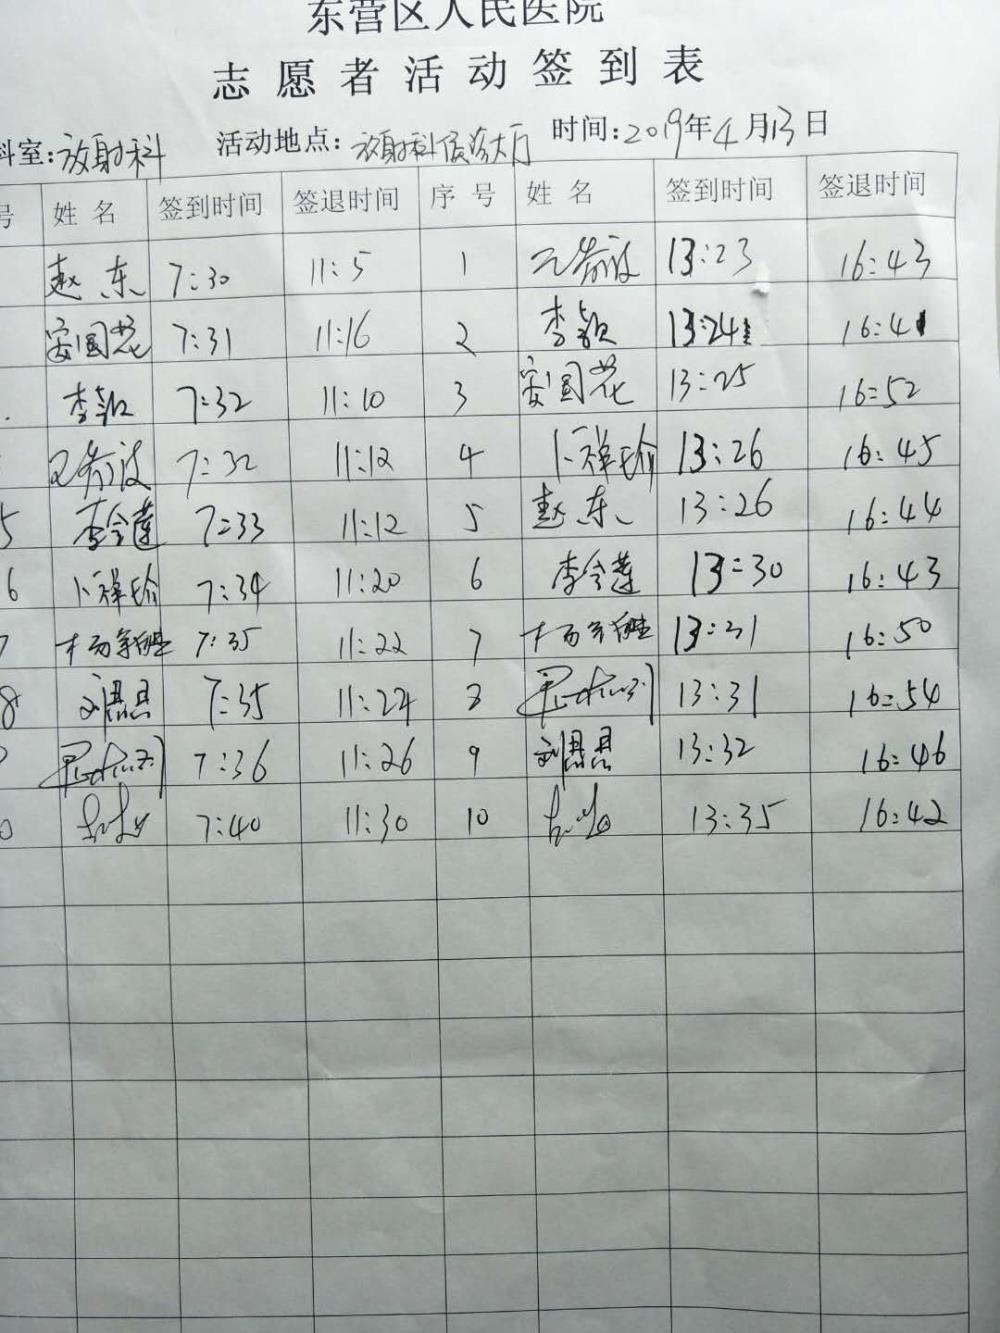 东营区人民医院
志愿者活动签到表
科室:放射科 活动地点:放射科候诊大厅 时间:2019年4月13日
号 姓名 签到时间 签退时间 序号 姓名 签到时间 签退时间
赵东 7:30 11:5 1 13:23 16:43
安国花 7:31 11:16 2 李颖 13:24 16:41
李颖 7:32 11:10 3 安国花 13:25 16:52
7:32 11:12 4 卜祥瑜 13:26 16:45
5 李令莲 7:33 11:12 5 赵东 13:26 16:44
6 卜祥瑜 7:34 11:20 6 李令莲 13:30 16:43
7 7:35 11:22 7 13:31 16:50
8 刘思思 7:35 11:24 8 13:31 16:54
7:36 11:26 9 刘思思 13:32 16:46
0 7:40 11:30 10 13:35 16:42